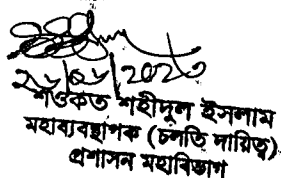 শওকত শহীদুল ইসলাম
মহাব্যবস্থাপক (চলতি দায়িত্ব)
প্রশাসন মহাবিভাগ